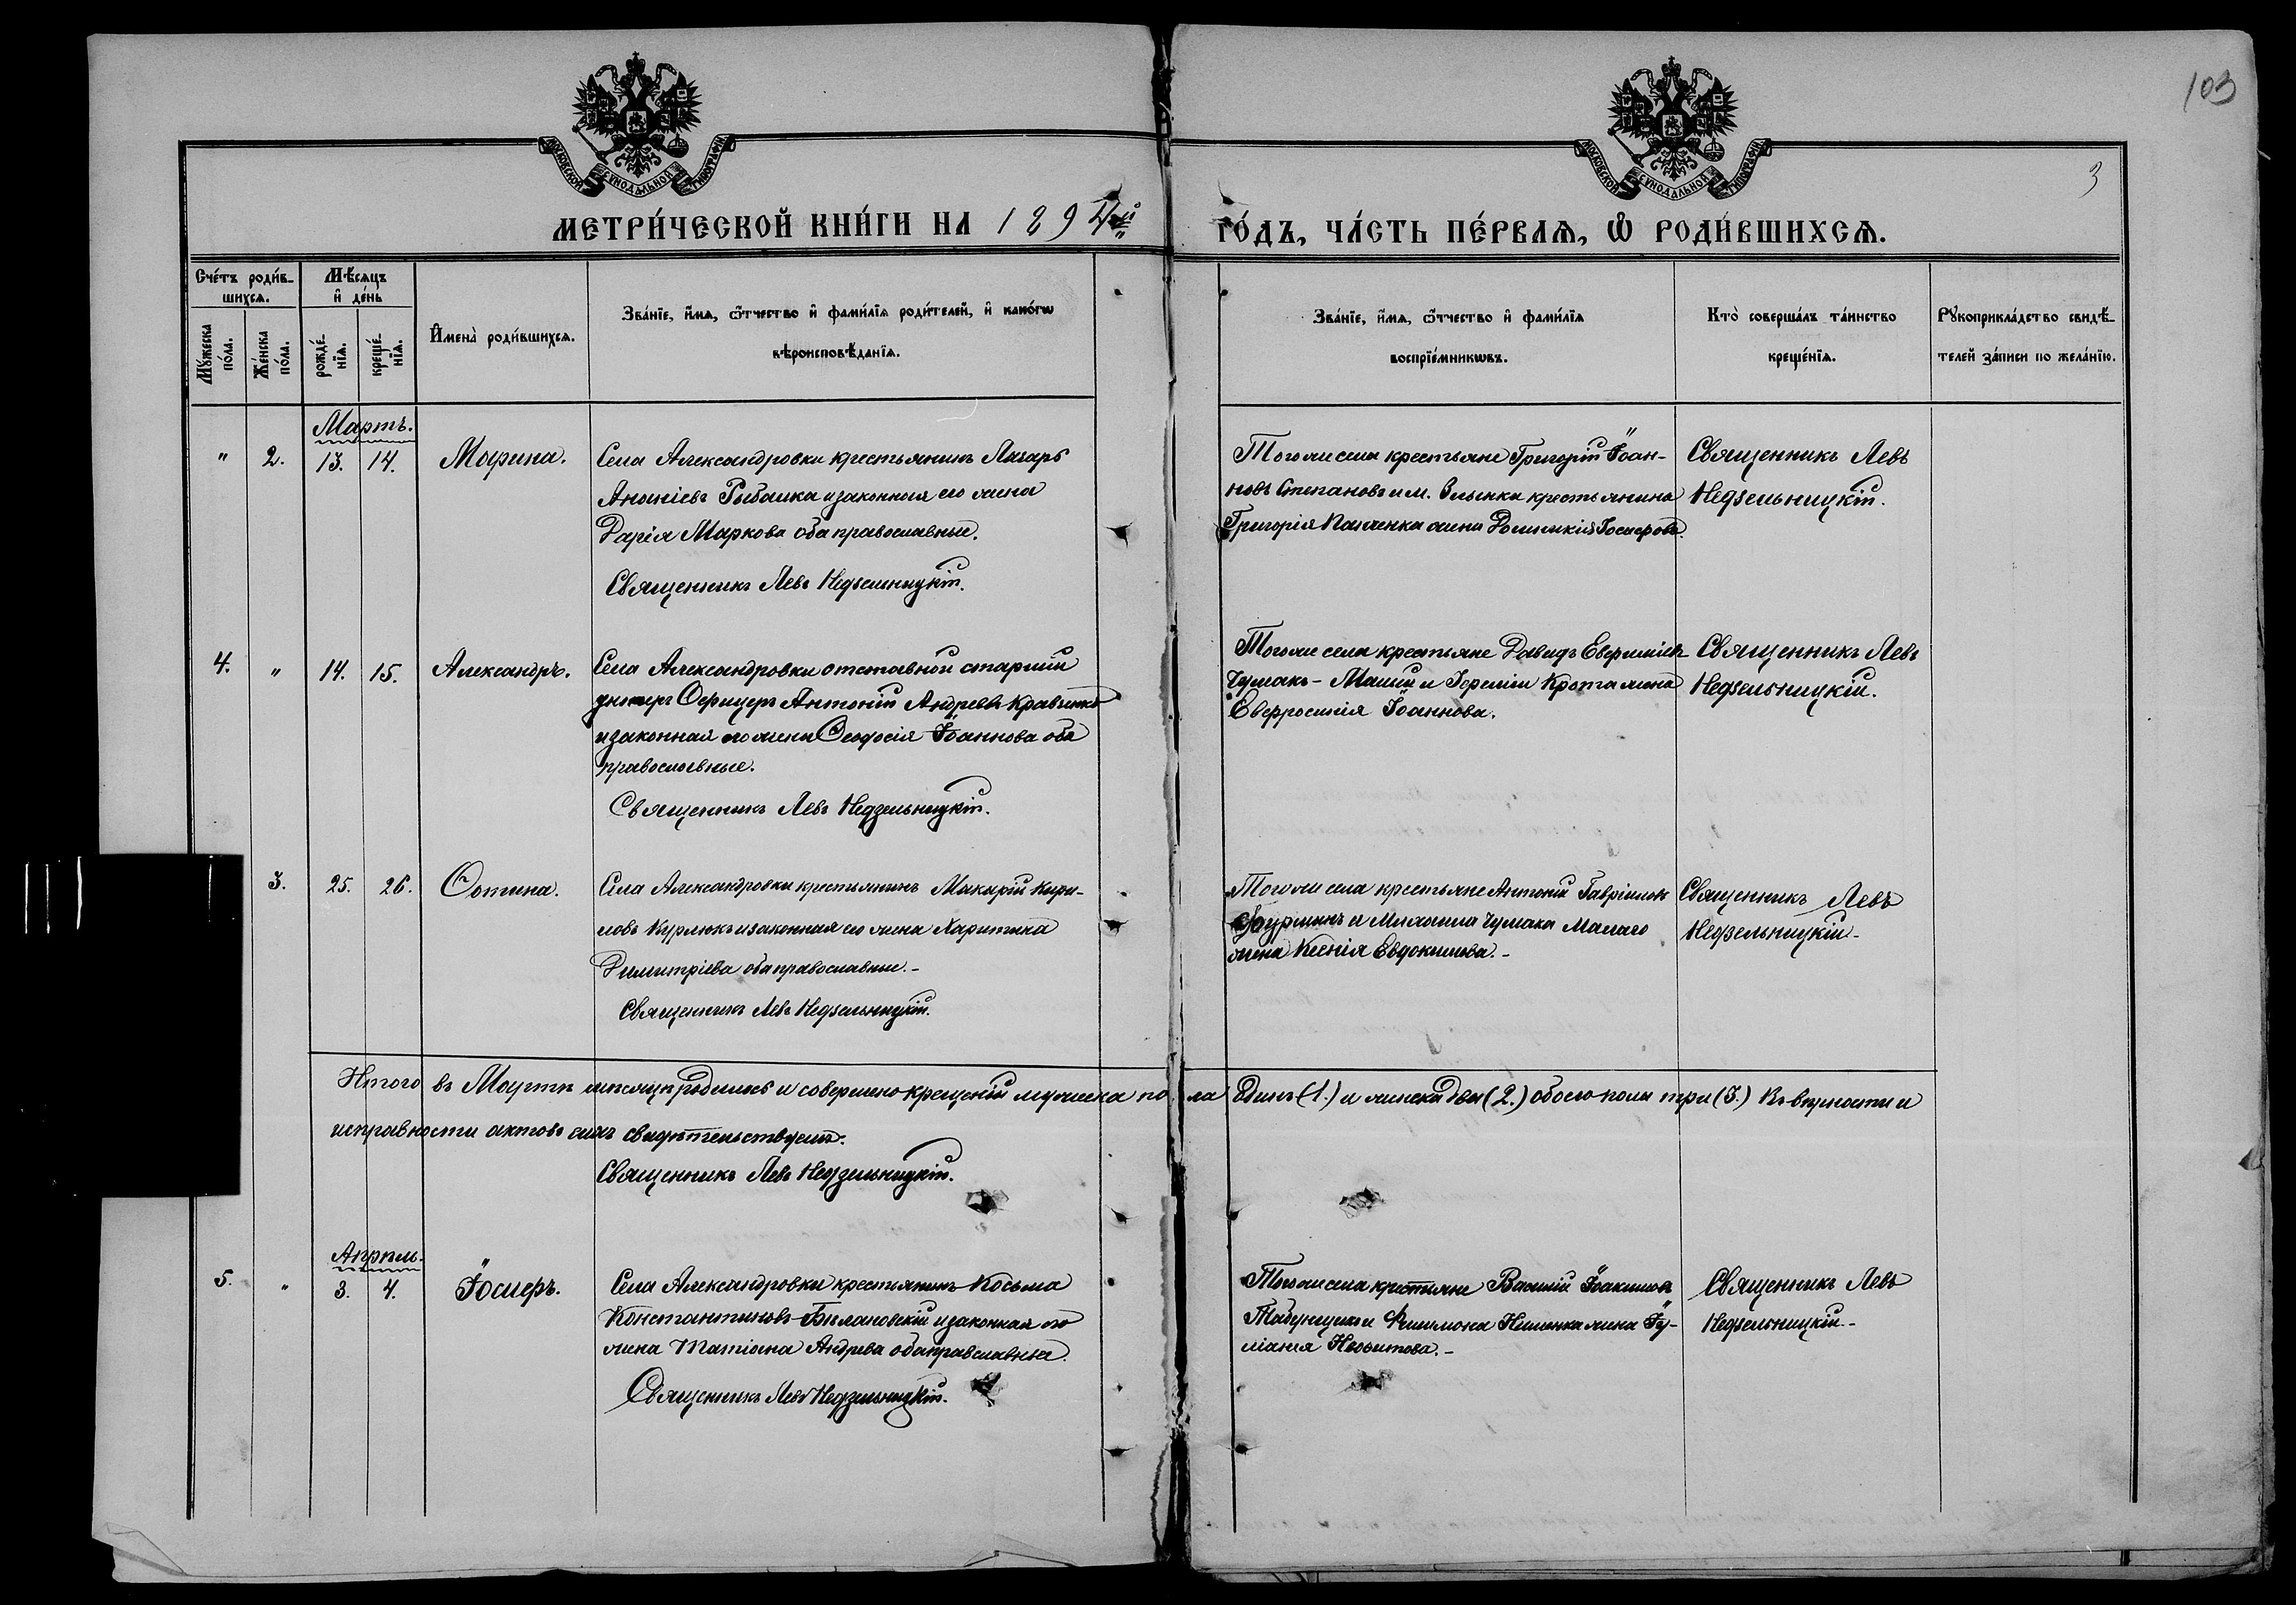 103
3
МОСКОВСКОЙ СѴНОДАЛЬНОЙ ТИПОГРАФІИ
МОСКОВСКОЙ СѴНОДАЛЬНОЙ ТИПОГРАФІИ
МЕТРИ́ЧЕСКОЙ КНИ́ГИ НА 1894й ГО́ДЪ, ЧА́СТЬ ПЕ́РВАЯ, Ѡ РОДИ́ВШИХСѦ.
Сче́тъ роди́в-
шихсѧ.
Мѣ́сяцъ
и҆ де́нь
Мꙋ́жеска
по́ла.
Же́нска
по́ла.
рожде́-
нїѧ.
креще́-
нїѧ.
И҆мена̀ роди́вшихсѧ.
Зва́нїе, и҆́мѧ, ѻ҆́тчество и҆ фами́лїѧ роди́телей, и҆ како́гѡ
вѣроисповѣ́данїѧ.
Зва́нїе, и҆́мѧ, ѻ҆́тчество и҆ фами́лїѧ
воспрїе́мникѡвъ.
Кто̀ соверша́лъ та́инство
креще́нїѧ.
Рꙋкоприкла́дство свидѣ́-
телей за́писи по жела́нїю.
Мартъ.
" 2. 13. 14. Марина.
Села Александровки крестьянинъ Лазарь
Ананіевъ Рыбалка и законная его жена
Дарія Маркова оба православные.
Священникъ Левъ Недзельницкій.
Того же села крестьяне Григорій Іоан-
новъ Степановъ и м. крестьянина
Григорія жена Іосифова.
Священникъ Левъ
Недзельницкій.
4. " 14. 15. Александръ.
Села Александровки отставной старшій
унтеръ Офицеръ Антоній Андреевъ Кравченко
и законная его жена Ѳеодосія Іоаннова оба
православные.
Священникъ Левъ Недзельницкій.
Того же села крестьяне Давидъ
Чумакъ-Малый и Іереміи Крота жена
Евфросинія Іоаннова.
Священникъ Левъ
Недзельницкій.
3. 25. 26. Фотина.
Села Александровки крестьянинъ Макарій Кири-
ловъ Курлюкъ и законная его жена Харитина
Димитріева оба православные.-
Священникъ Левъ Недзельницкій.
Того же села крестьяне Антоній Гавріиловъ
и Михаила Чумака Малаго
жена Ксенія Евдокимова.-
Священникъ Левъ
Недзельницкій.-
Итого въ Мартѣ мѣсяцѣ родилось и совершено крещеній мужеска пола Одинъ (1.) и женска два (2.) обоего пола три (3.) Въ вѣрности и
исправности актовъ сихъ свидѣтельствуемъ.
Священникъ Левъ Недзельницкій.
Апрѣль.
5. " 3. 4. Іосифъ.
Села Александровки крестьянинъ Косьма
Константиновъ Билановскій и законная его
жена Татіана Андреева оба православные.
Священникъ Левъ Недзельницкій.
Того же села крестьяне Василій Іоакимовъ
и Филимона жена Іу-
ліанія
Священникъ Левъ
Недзельницкій.-